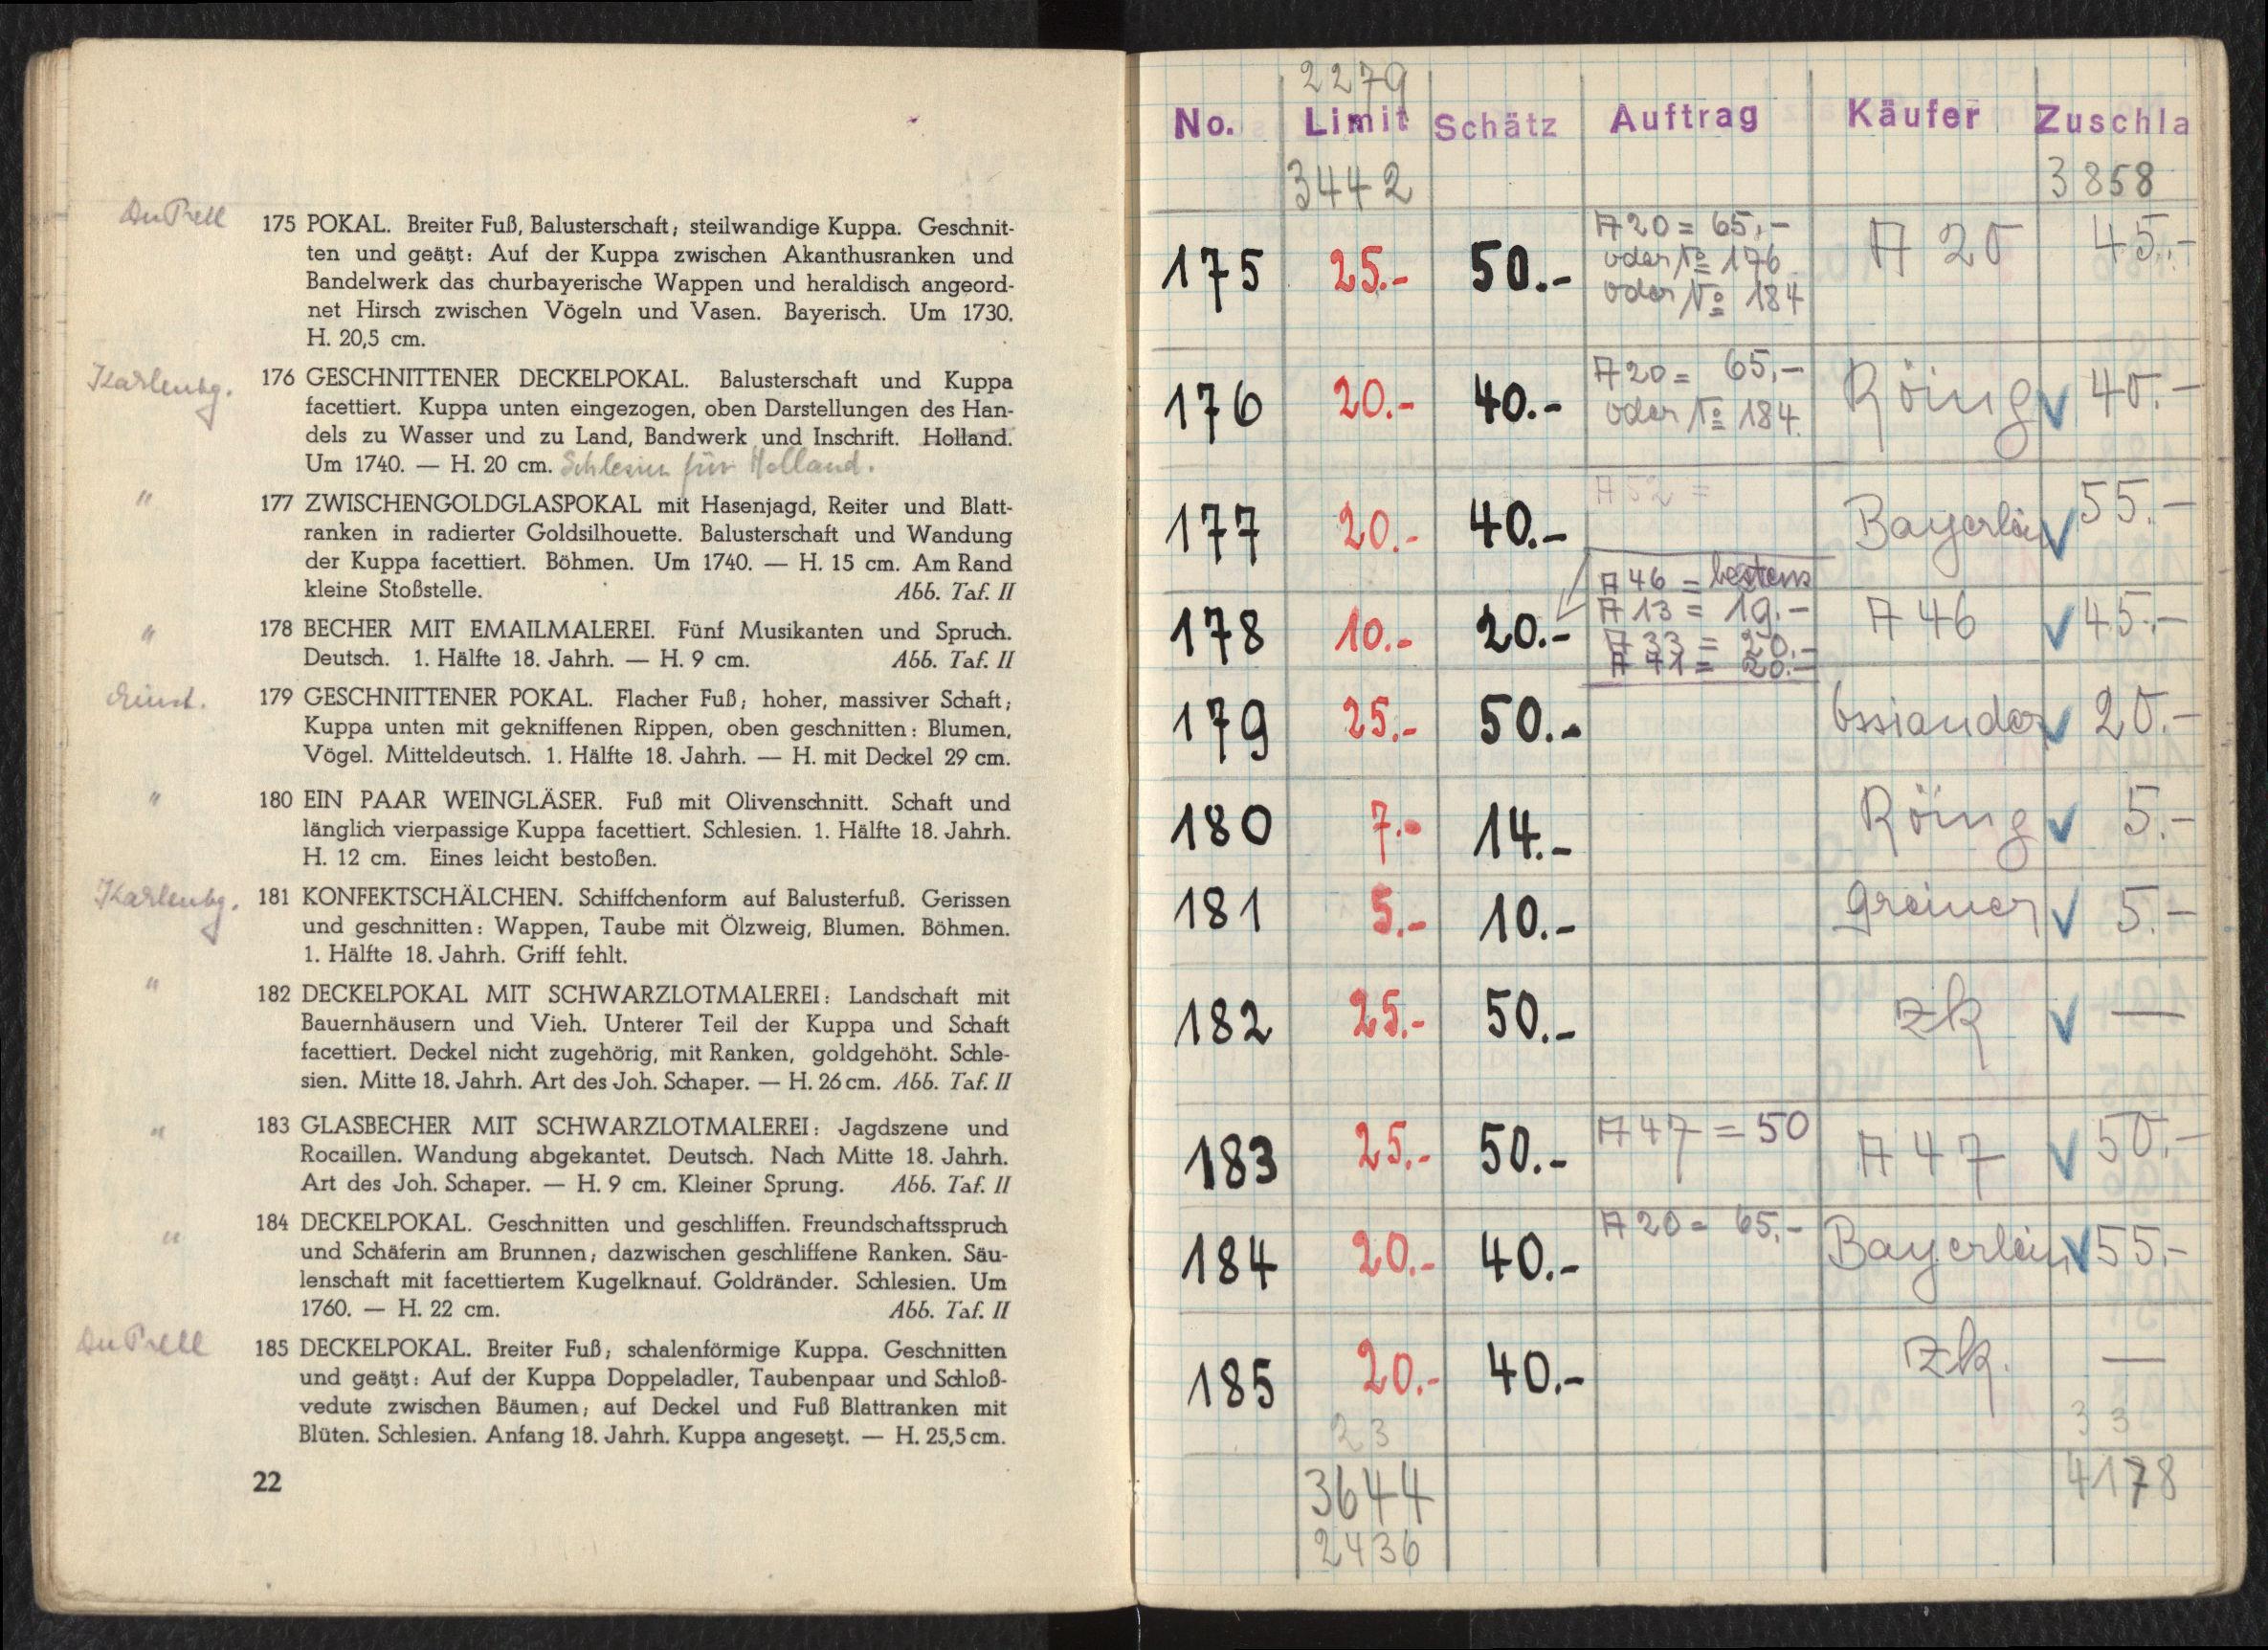 Du Prell
175 POKAL. Breiter Fuß, Balusterschaft; steilwandige Kuppa. Geschnit-
ten und geätzt: Auf der Kuppa zwischen Akanthusranken und
Bandelwerk das churbayerische Wappen und heraldisch angeord-
net Hirsch zwischen Vögeln und Vasen. Bayerisch. Um 1730.
H. 20,5 cm.
Karlenbg.
176 GESCHNITTENER DECKELPOKAL. Balusterschaft und Kuppa
facettiert. Kuppa unten eingezogen, oben Darstellungen des Han-
dels zu Wasser und zu Land, Bandwerk und Inschrift. Holland.
Um 1740. — H. 20 cm. Schlesien für Holland.
"
177 ZWISCHENGOLDGLASPOKAL mit Hasenjagd, Reiter und Blatt-
ranken in radierter Goldsilhouette. Balusterschaft und Wandung
der Kuppa facettiert. Böhmen. Um 1740. — H. 15 cm. Am Rand
kleine Stoßstelle. Abb. Taf. II
"
178 BECHER MIT EMAILMALEREI. Fünf Musikanten und Spruch.
Deutsch. 1. Hälfte 18. Jahrh. — H. 9 cm. Abb. Taf. II
179 GESCHNITTENER POKAL. Flacher Fuß; hoher, massiver Schaft;
Kuppa unten mit gekniffenen Rippen, oben geschnitten: Blumen,
Vögel. Mitteldeutsch. 1. Hälfte 18. Jahrh. — H. mit Deckel 29 cm.
"
180 EIN PAAR WEINGLÄSER. Fuß mit Olivenschnitt. Schaft und
länglich vierpassige Kuppa facettiert. Schlesien. 1. Hälfte 18. Jahrh.
H. 12 cm. Eines leicht bestoßen.
Karlenbg.
181 KONFEKTSCHÄLCHEN. Schiffchenform auf Balusterfuß. Gerissen
und geschnitten: Wappen, Taube mit Ölzweig, Blumen. Böhmen.
1. Hälfte 18. Jahrh. Griff fehlt.
"
182 DECKELPOKAL MIT SCHWARZLOTMALEREI: Landschaft mit
Bauernhäusern und Vieh. Unterer Teil der Kuppa und Schaft
facettiert. Deckel nicht zugehörig, mit Ranken, goldgehöht. Schle-
sien. Mitte 18. Jahrh. Art des Joh. Schaper. — H. 26 cm. Abb. Taf. II
"
183 GLASBECHER MIT SCHWARZLOTMALEREI: Jagdszene und
Rocaillen. Wandung abgekantet. Deutsch. Nach Mitte 18. Jahrh.
Art des Joh. Schaper. — H. 9 cm. Kleiner Sprung. Abb. Taf. II
"
184 DECKELPOKAL. Geschnitten und geschliffen. Freundschaftsspruch
und Schäferin am Brunnen; dazwischen geschliffene Ranken. Säu-
lenschaft mit facettiertem Kugelknauf. Goldränder. Schlesien. Um
1760. — H. 22 cm. Abb. Taf. II
Du Prell
185 DECKELPOKAL. Breiter Fuß; schalenförmige Kuppa. Geschnitten
und geätzt: Auf der Kuppa Doppeladler, Taubenpaar und Schloß-
vedute zwischen Bäumen; auf Deckel und Fuß Blattranken mit
Blüten. Schlesien. Anfang 18. Jahrh. Kuppa angesetzt. — H. 25,5 cm.
22
2279
No. Limit Schätz Auftrag Käufer Zuschla
3442 3858
175 25.- 50.- A 20 = 65,- A 20 45.-
oder No 176
oder No 184
176 20.- 40.- A 20 = 65,- Röing 40.-
oder No 184.
177 20.- 40.- Bayerlein 55.-
A 46 = bestens
178 10.- 20.- A 13 = 19.- A 46 45.-
A 33 = 20.-
A 71 = 20.-
179 25.- 50.- Ossiander 20.-
180 7.- 14.- Röing 5.-
181 5.- 10.- Greiner 5.-
182 25.- 50.- zk —
183 25.- 50.- A 47 = 50 A 47 50.-
184 20.- 40.- A 20 = 65,- Bayerlein 55.-
185 20.- 40.- zk. —
23 33
3644 4178
2436